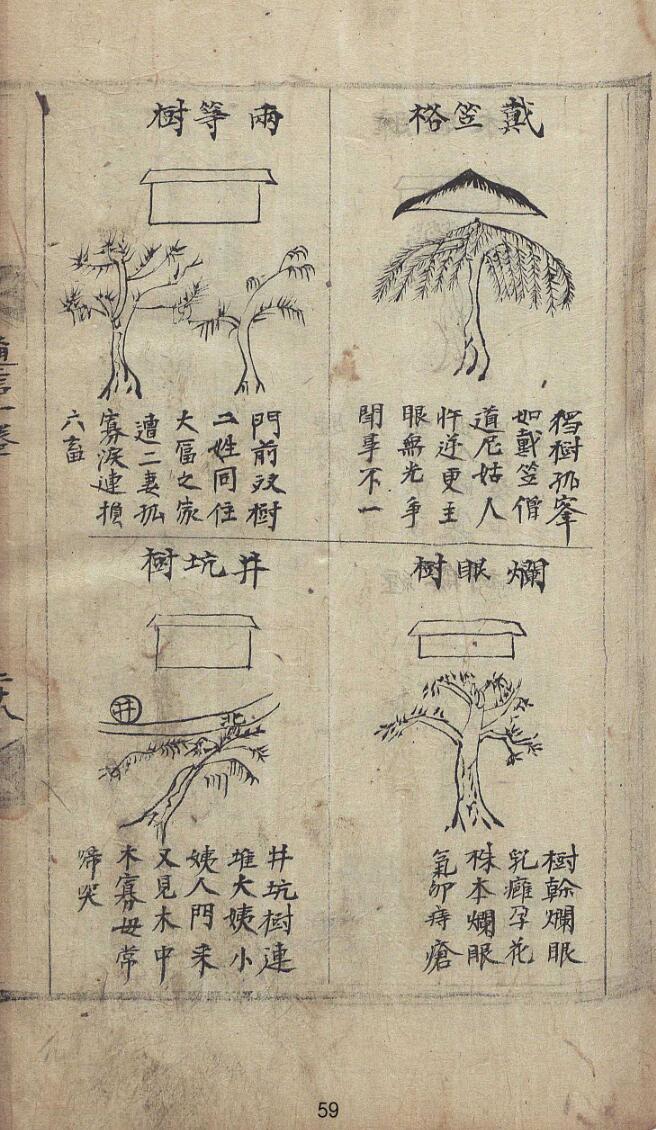 戴笠格
独樹孤峯
如戴笠僧
道尼姑人
忤逆更主
眼無光争
鬧事不一
兩等樹
門前双樹
二姓同住
大富之家
遭二妻孤
寡淚連損
六畜
爛眼樹
樹幹爛眼
乳癰孕花
株本爛眼
氣卵痔瘡
井坑樹
井
井坑樹連
堆大姨小
姨人門来
又見木中
木寡母常
啼哭
59